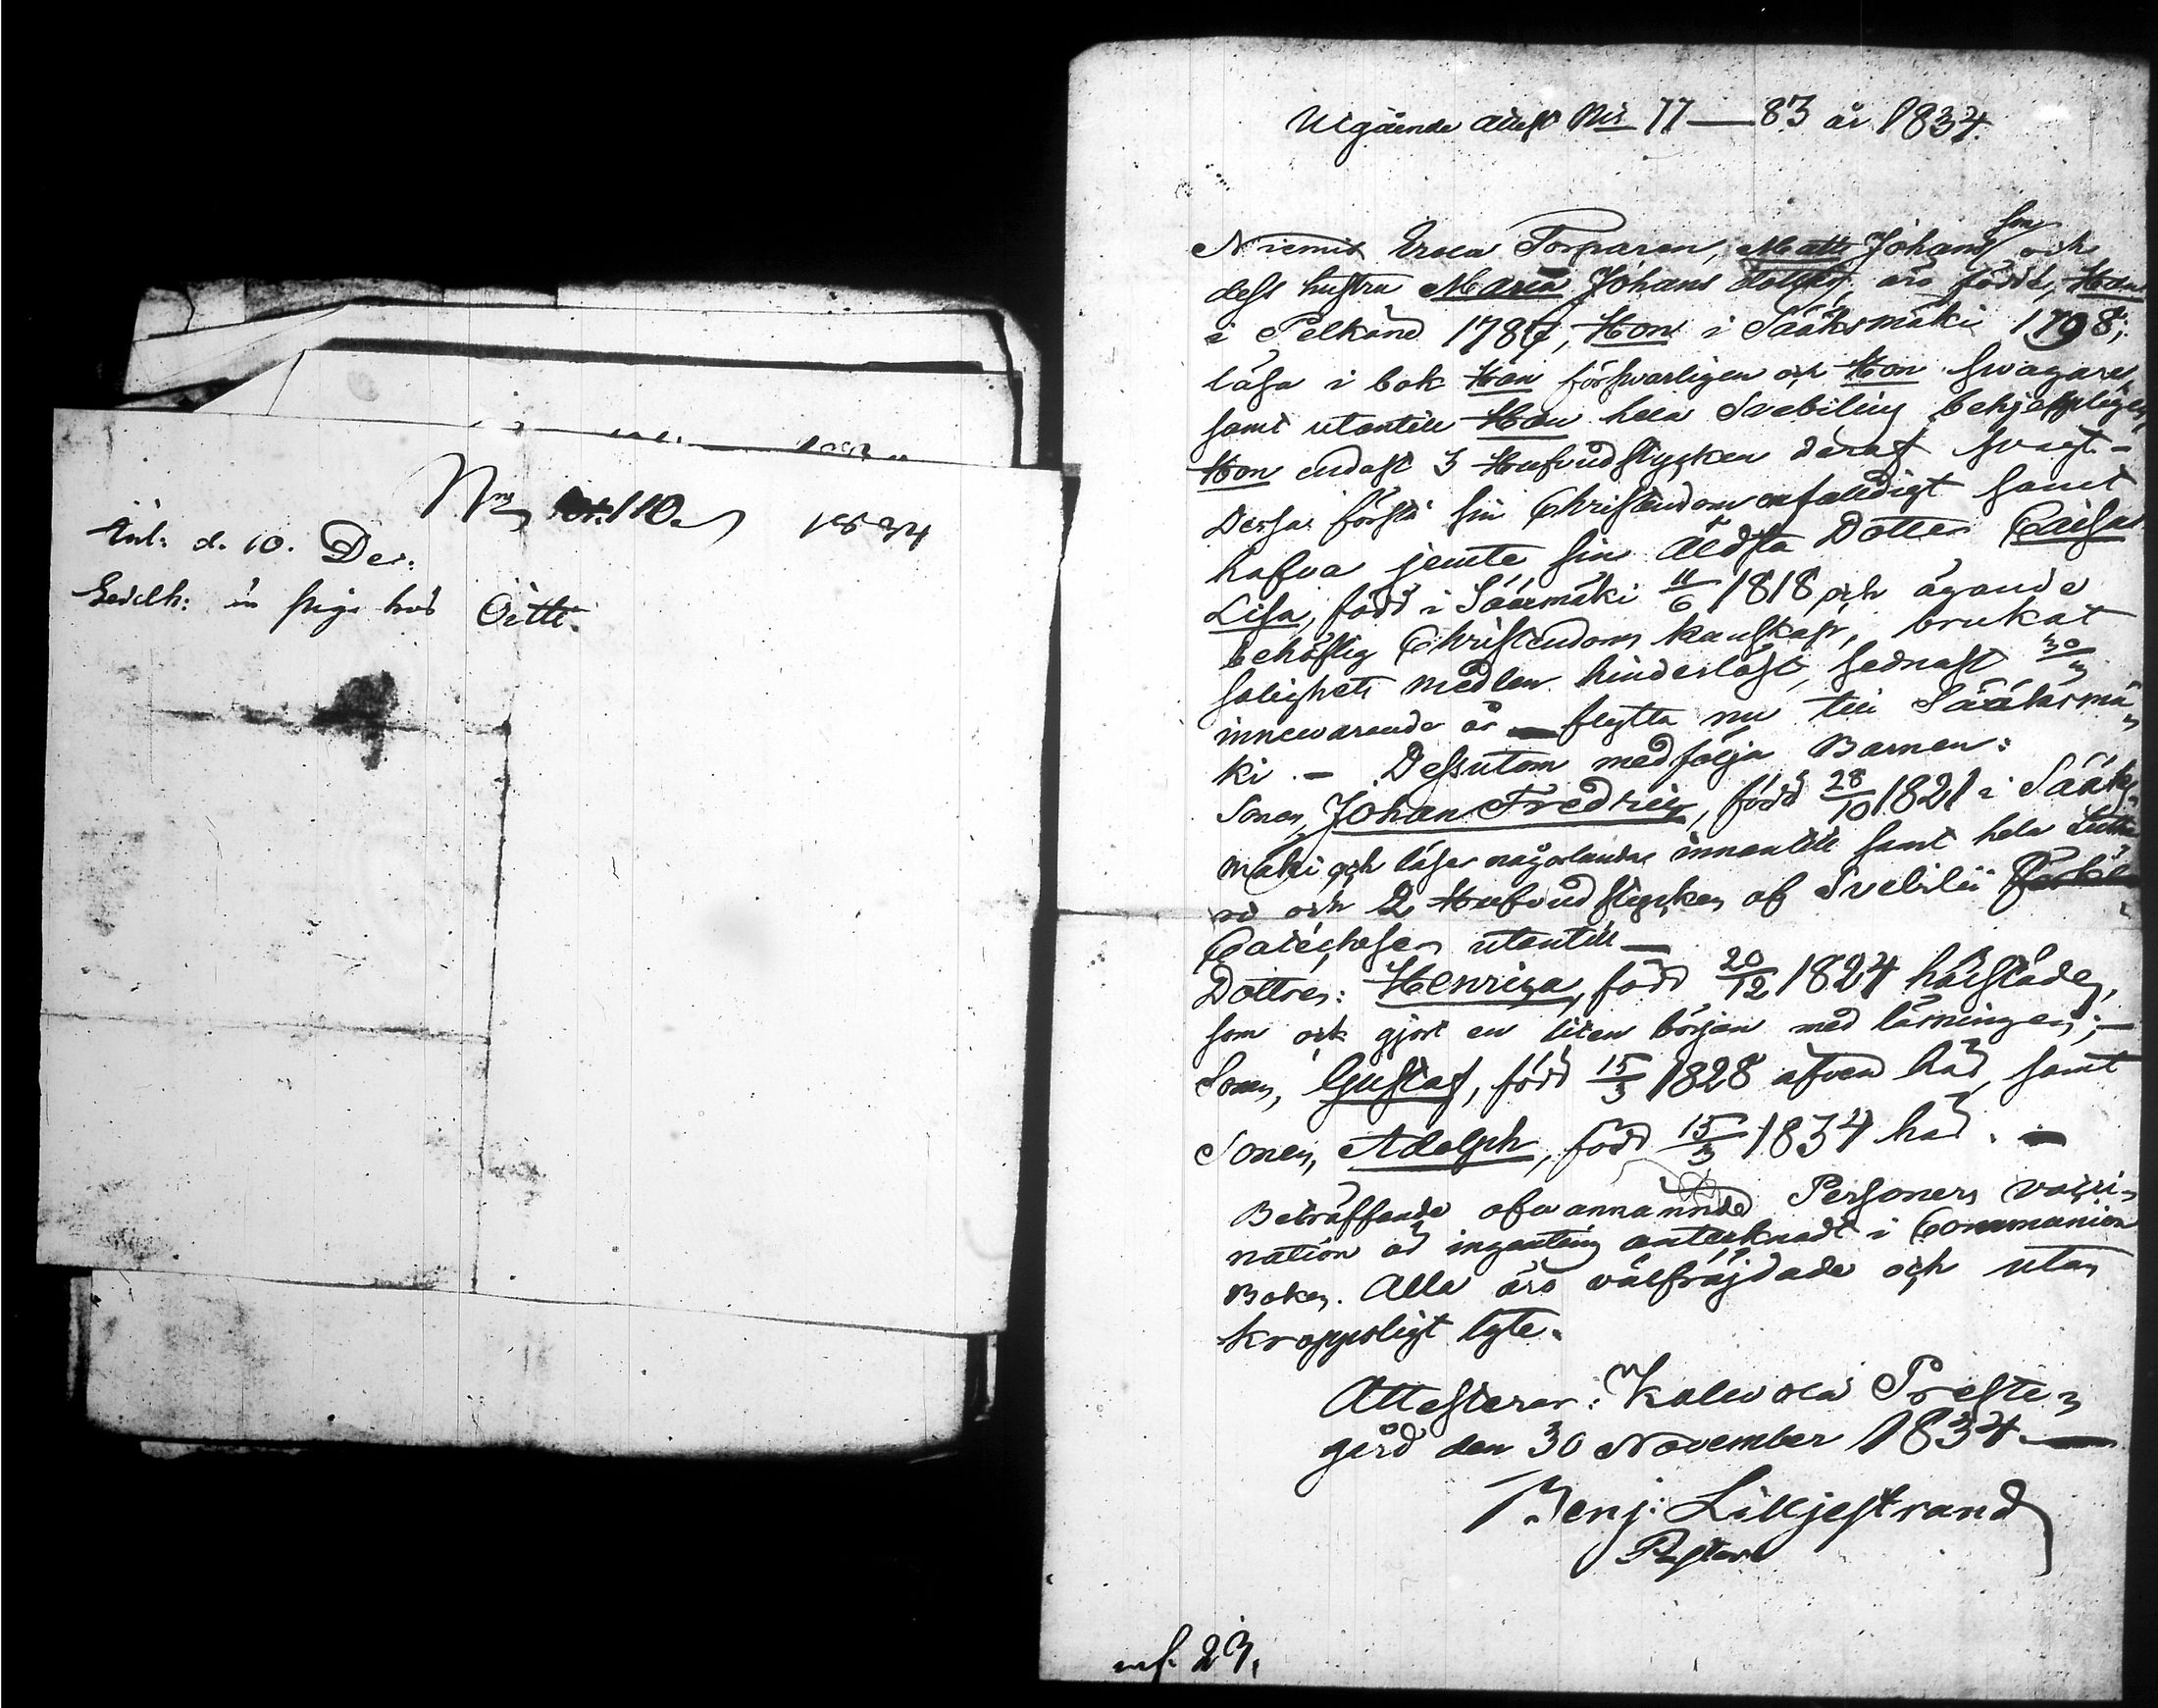 No 110. 1834
Ank: d. 10. Dec:
Sedelh: är piga hos Oitti
Utgående attest No 77—83 år 1834.
Niemis Torparen, Matts Johansson och
dess hustru Maria Johans dotter, äro födde, Han
i Pelkäne 1787, Hon i Sääksmäki 1798;
läsa i bok Han försvarligen och Hon svagare,
samt utantill Han hela Svebilius behjelpligen,
Hon endast 3 Hufvudstycken deraf svagt. -
Dessa förstå sin Christendom enfaldigt samt
hafva jemte sin äldsta Dotter Caisa
Lisa, född i Sääxmäki 11/6 1818 och ägande
behöflig Christendoms kunskap, brukat
salighets medlen hinderlöst, sednast 30/3
innewarande år — flytta nu till Sääksmä-
ki. - Dessutom medfölja Barnen:
Sonen, Johan Fredric, född 28/10 1821 i Sääks-
mäki och läser någorlunda innantill samt hela Luthe-
ri och 2 Hufvudstycken af Svebilii
Catechesen utantill —
Dottren: Henrica, född 20/12 1824 härstädes,
som ock gjort en liten början med läsningen; —
Sonen, Gustaf, född 15/3 1828 äfven här, samt
Sonen, Adolph, född 15/3 1834 här. —
Beträffande ofvannämnde Personers vacci-
nation är ingenting antecknadt i Communion
Boken. Alla äro välfräjdade och utan
kroppsligt lyte.
Attesterar: Kalvola Preste-
gård den 30 November 1834. —
Benj: Lilljestrand
Pastor
23.